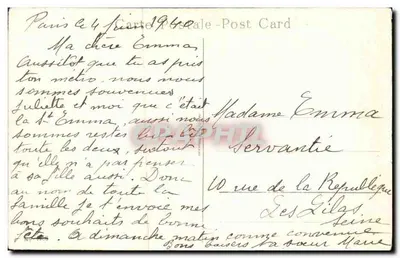 Paris le 4 1940
Carte Postale - Post Card
Ma chère Emma
Aussitôt que tu as pris
ton métro nous nous
sommes souvenues
Juliette et moi que c'était
la St Emma, aussi nous
sommes restés
toute les deux, surtout
qu'elle n'a pas penser
à sa fille aussi. Donc
au nom de toute la
famille je t'envoie mes
bons souhaits de bonne
fête. A dimanche matin comme convenue
Bons baisers ta soeur Marie
Madame Emma
Servantie
10 rue de la République
Les Lilas
Seine